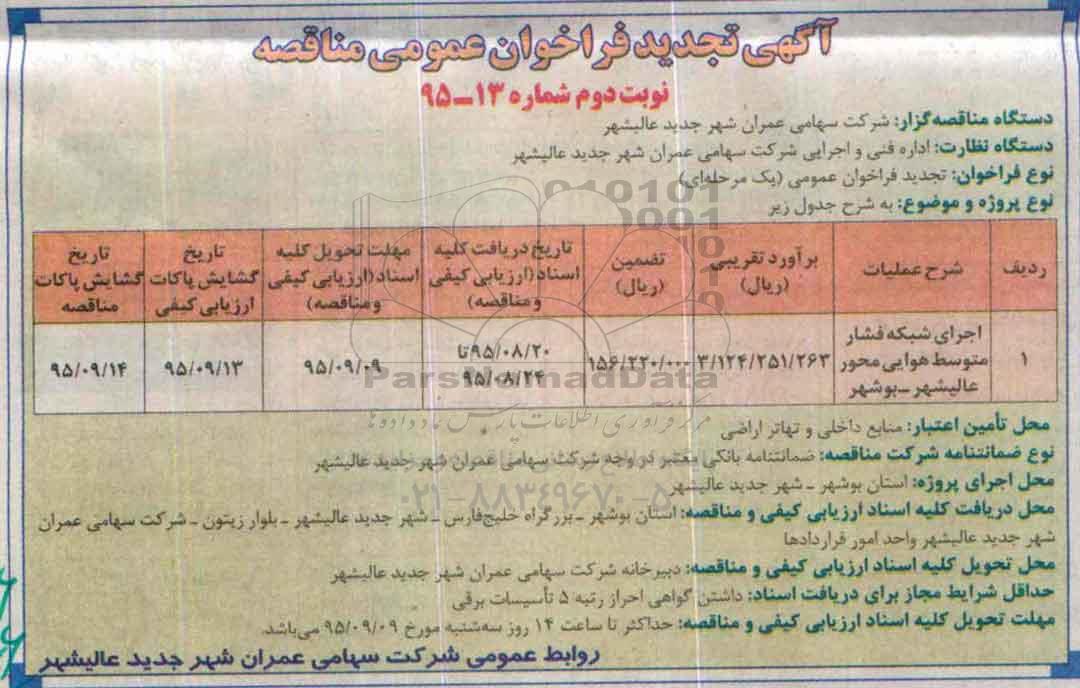 آگهی تجدید فراخوان عمومی مناقصه
نوبت دوم شماره ۱۳-۹۵
دستگاه مناقصه‌گزار: شرکت سهامی عمران شهر جدید عالیشهر
دستگاه نظارت: اداره فنی و اجرایی شرکت سهامی عمران شهر جدید عالیشهر
نوع فراخوان: تجدید فراخوان عمومی (یک مرحله‌ای)
نوع پروژه و موضوع: به شرح جدول زیر
ردیف
شرح عملیات
برآورد تقریبی
(ریال)
تضمین
(ریال)
تاریخ دریافت کلیه
اسناد (ارزیابی کیفی
و مناقصه)
مهلت تحویل کلیه
اسناد (ارزیابی کیفی
و مناقصه)
تاریخ
گشایش پاکات
ارزیابی کیفی
تاریخ
گشایش پاکات
مناقصه
۱
اجرای شبکه فشار
متوسط هوایی محور
عالیشهر ـ بوشهر
۳/۱۲۴/۲۵۱/۲۶۳
۱۵۶/۲۲۰/۰۰۰
۹۵/۰۸/۲۰ تا
۹۵/۰۸/۲۴
۹۵/۰۹/۰۹
۹۵/۰۹/۱۳
۹۵/۰۹/۱۴
محل تأمین اعتبار: منابع داخلی و تهاتر اراضی
نوع ضمانتنامه شرکت مناقصه: ضمانتنامه بانکی معتبر در وجه شرکت سهامی عمران شهر جدید عالیشهر
محل اجرای پروژه: استان بوشهر ـ شهر جدید عالیشهر
محل دریافت کلیه اسناد ارزیابی کیفی و مناقصه: استان بوشهر ـ بزرگراه خلیج‌فارس ـ شهر جدید عالیشهر ـ بلوار زیتون ـ شرکت سهامی عمران
شهر جدید عالیشهر واحد امور قراردادها
محل تحویل کلیه اسناد ارزیابی کیفی و مناقصه: دبیرخانه شرکت سهامی عمران شهر جدید عالیشهر
حداقل شرایط مجاز برای دریافت اسناد: داشتن گواهی احراز رتبه ۵ تأسیسات برقی
مهلت تحویل کلیه اسناد ارزیابی کیفی و مناقصه: حداکثر تا ساعت ۱۴ روز سه‌شنبه مورخ ۹۵/۰۹/۰۹ می‌باشد.
روابط عمومی شرکت سهامی عمران شهر جدید عالیشهر
مرکز فرآوری اطلاعات پارس نماد داده ها
۰۲۱-۸۸۳۴۹۶۷۰-۵